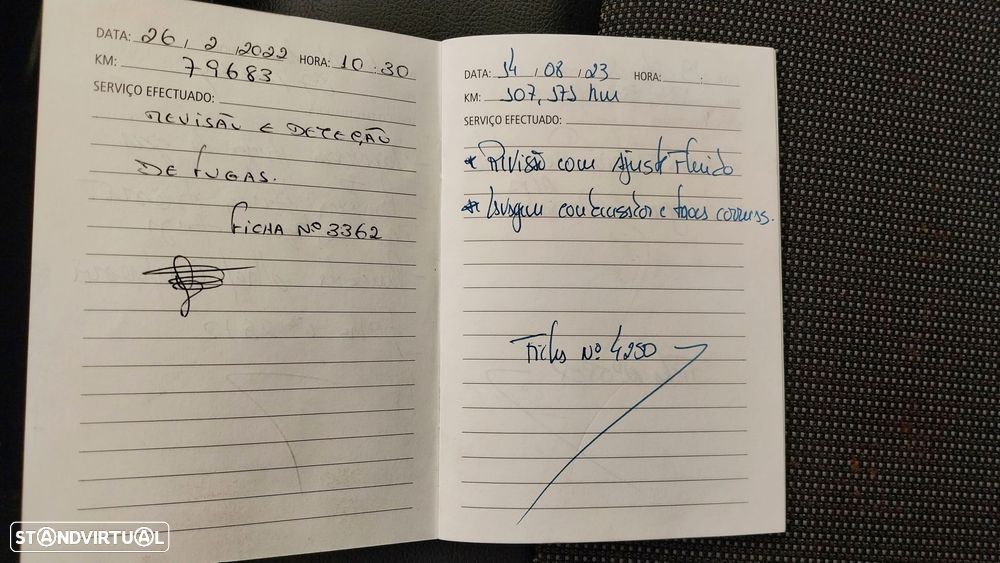 DATA: 26 / 2 / 2022 HORA: 10 : 30
KM: 79683
SERVIÇO EFECTUADO:
REVISÃO E DETEÇÃO
DE FUGAS.
FICHA Nº 3362
DATA: 14 / 08 / 23 HORA: :
KM: 107,171 km
SERVIÇO EFECTUADO:
* Revisão com Ajuste Fluido
* Lavagem condensador e
Nº 4250
STANDVIRTUAL